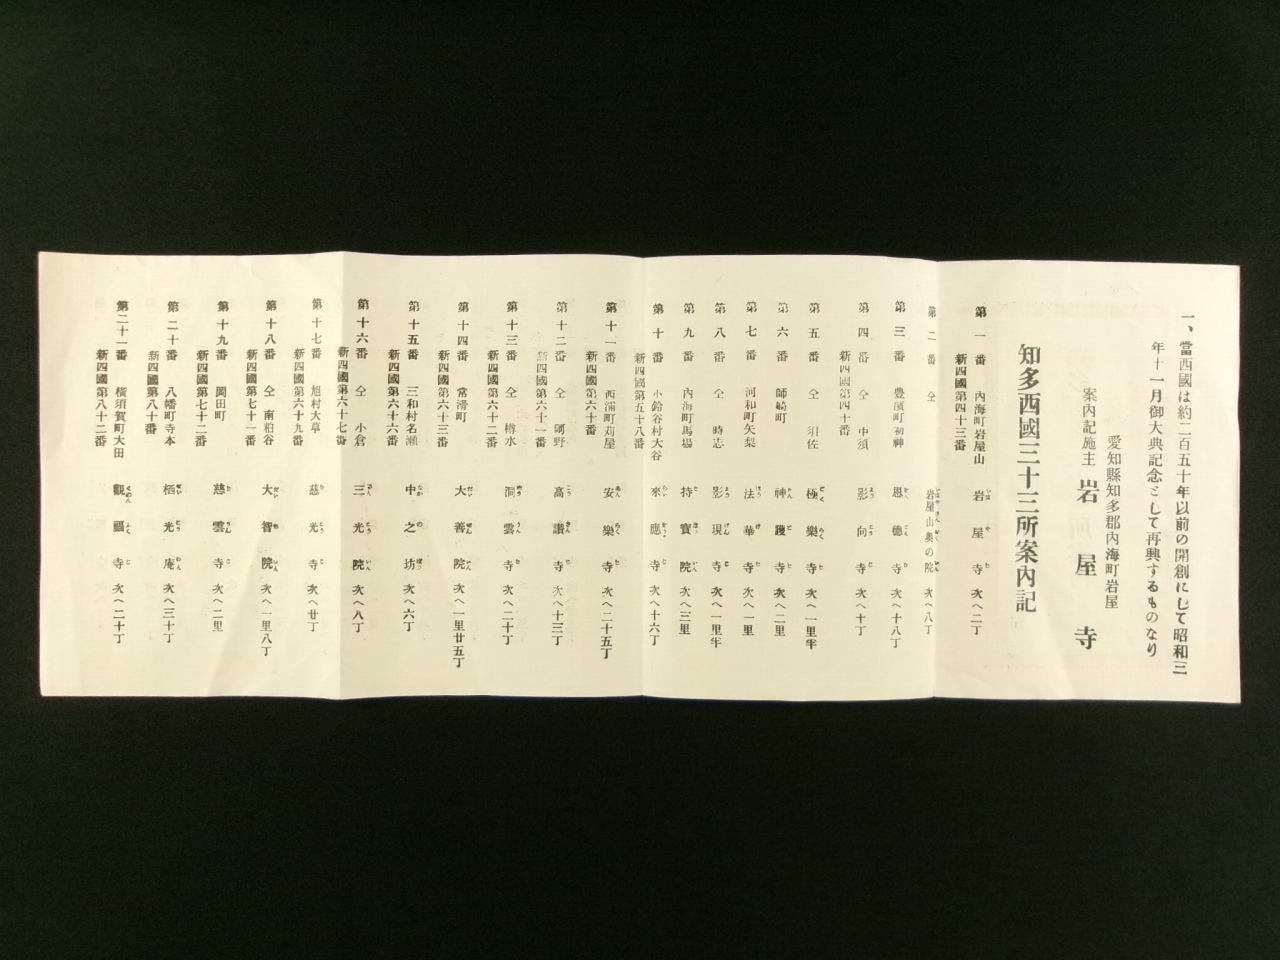 一、當西國は約二百五十年以前の開創にして昭和三
年十一月御大典記念として再興するものなり
愛知縣知多郡內海町岩屋
案內記施主 岩屋寺
知多西國三十三所案內記
第一番 內海町岩屋山 岩屋寺 次へ二丁
新四國第四十三番
第二番 仝 岩屋山奧の院 次へ八丁
第三番 豊濱町初神 恩德寺 次へ十八丁
第四番 仝 中須 影向寺 次へ十丁
新四國第四十番
第五番 仝 須佐 極樂寺 次へ一里半
第六番 師崎町 神護寺 次へ二里
第七番 河和町矢梨 法華寺 次へ一里
第八番 仝 時志 影現寺 次へ一里半
第九番 內海町馬場 持寶院 次へ三里
第十番 小鈴谷村大谷 來應寺 次へ十六丁
新四國第五十八番
第十一番 西浦町苅屋 安樂寺 次へ二十五丁
新四國第六十番
第十二番 仝 阿野 高讃寺 次へ十三丁
新四國第六十一番
第十三番 仝 樽水 洞雲寺 次へ二十丁
新四國第六十二番
第十四番 常滑町 大善院 次へ一里廿五丁
新四國第六十三番
第十五番 三和村名瀬 中之坊 次へ六丁
新四國第六十六番
第十六番 仝 小倉 三光院 次へ八丁
新四國第六十七番
第十七番 旭村大草 慈光寺 次へ廿丁
新四國第六十九番
第十八番 仝 南粕谷 大智院 次へ一里八丁
新四國第七十一番
第十九番 岡田町 慈雲寺 次へ二里
新四國第七十二番
第二十番 八幡町寺本 栖光庵 次へ三十丁
新四國第八十番
第二十一番 橫須賀町大田 觀福寺 次へ二十丁
新四國第八十二番